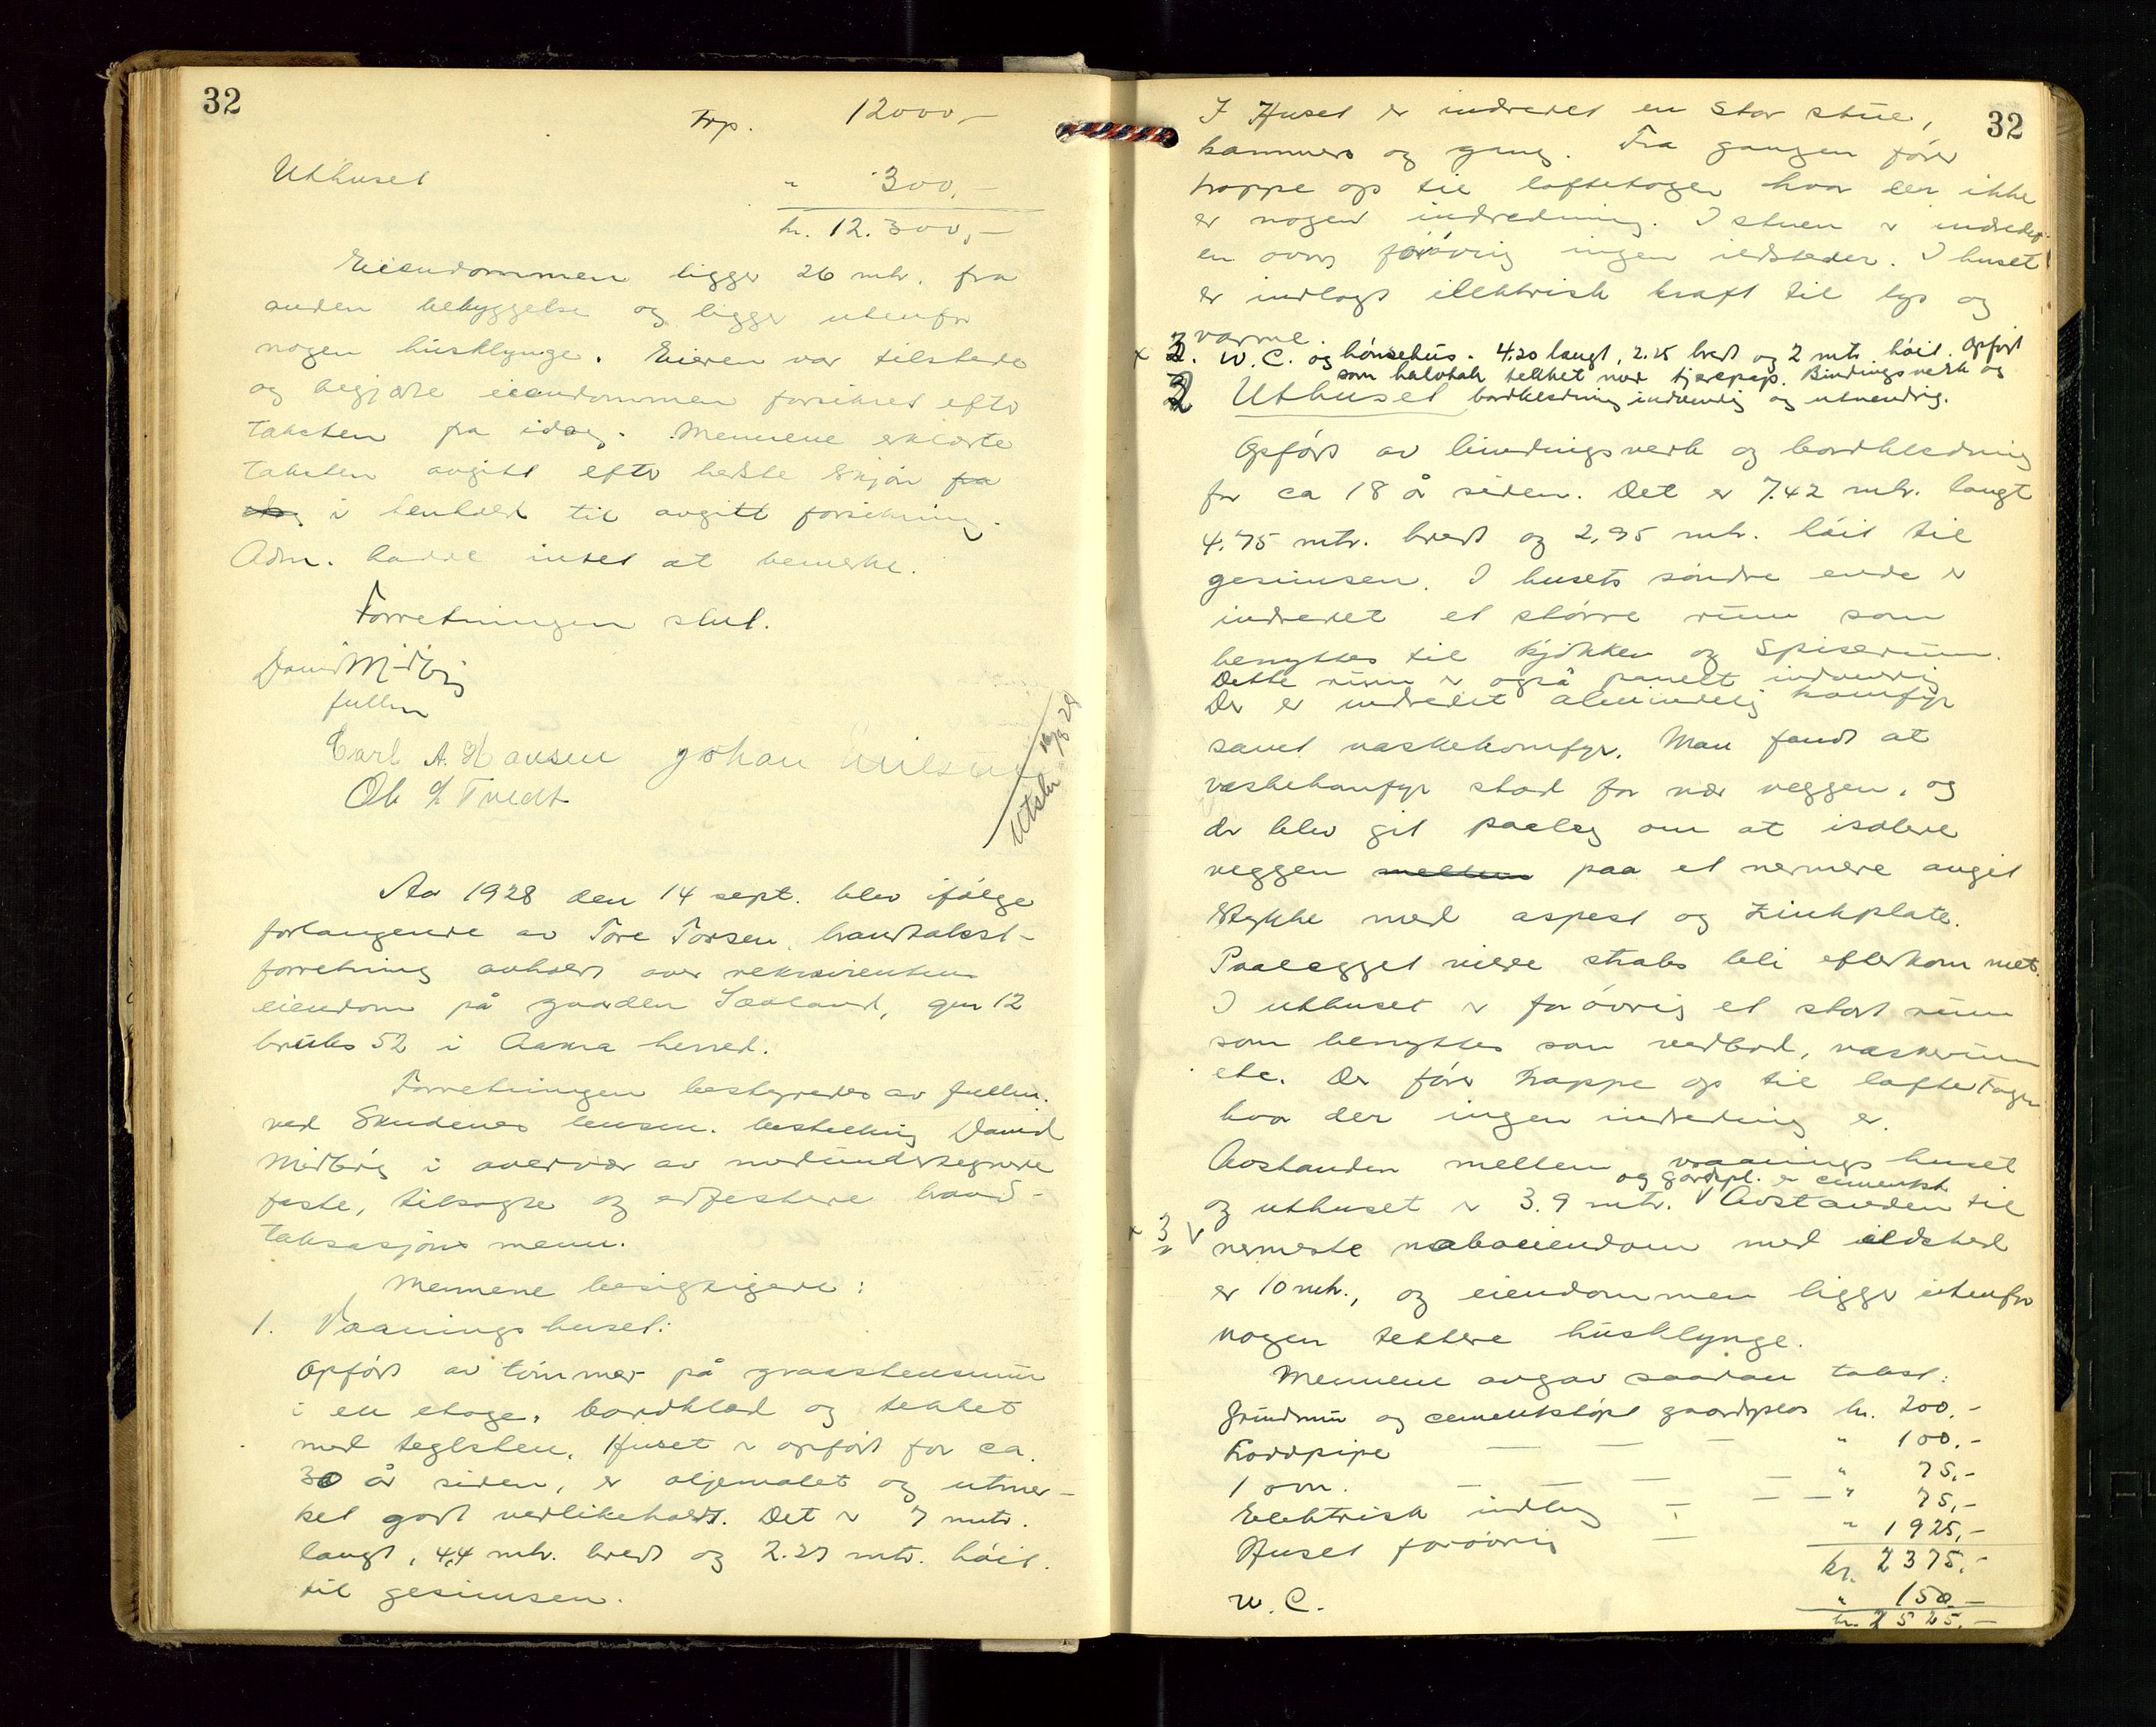 32
Trp. 12000,-
Uthuset " 300,-
kr. 12.300,-
Eiendommen ligger 26 mtr. fra
anden bebyggelse og ligger utenfor
nogen húsklynge. Eieren var tilstede
og begjærte eiendommen forsikret efter
taksten fra idag. Mennene erklærte
taksten avgitt efter beste skjøn fra
idag i henhold til avgitt forsikring.
Adm. hadde intet at bemerke.
Forretningen slut.
David Midbøg
fullm
Carl A. Hansen Johan Nilsen
Ole L Tvedt
Utskr 19/9 28
Aar 1928 den 14 sept. blev ifølge
forlangende av Tore Torsen, brandtakst-
forretning avholdt over rekvirentens
eiendom på gaarden Sævland, gnr 12
brúks 52 i Aakra herred.
Forretningen bestyredes av fullm.
ved Skudenes lensm. bestilling David
Midbøg i overvær av nedúndertegnede
faste, tilsagte og edfestede brand-
taksasjons menn.
Mennene besigtigede:
1. Vaaningshuset:
Opført av tømmer på graastensmúr
i en etage, bordklæd og tekket
med teglsten. Huset er opført for ca.
30 år siden, er oljemalet og utmer-
ket godt vedlikeholdt. Det er 7 mtr.
langt, 4,4 mtr. bredt og 2.27 mtr. høit
til gesimsen.
32
I Huset er indredet en stor stúe,
kammers og gang. Fra gangen fører
trappe op til loftetagen hvor der ikke
er nogen indredning. I stuen er indredet
en ovn forøvrig ingen ildsteder. I huset
er indlagt elektrisk kraft til lys og
varme.
x 2. W.C. og hønsehús. 4.20 langt, 2.25 bredt og 2 mtr. høit. Opført
som halvtak tekket med tjærepap. Bindingsverk og
bordklædning indvendig og utvendig.
3 Uthuset
Opført av bindingsverk og bordklædning
for ca 18 år siden. Det er 7.42 mtr. langt
4.75 mtr. bredt og 2,95 mtr. høit til
gesimsen. I husets søndre ende er
indredet et større rúm som
benyttes til kjøkken og Spiserúm.
Dette rúm er også panelt indvendig
Der er indredet almindelig komfyr
samt vaskekomfyr. Man fandt at
vaskekomfyr stod for nær veggen, og
der blev git paaleg om at isolere
veggen mellem paa et nermere angit
Stykke med aspest og Zinkplate.
Paalegget vilde straks bli efterkommet.
I uthuset er forøvrig et stort rúm
som benyttes som vedbod, vaskerúm
etc. Der fører trappe op til loftetagen
hvor der ingen indredning er.
Avstanden mellem vaanings huset
og gårdspl. er cementst
og uthuset er 3.9 mtr. V Avstanden til
x 3 V
nermeste naboeiendom med ildsted
er 10 mtr., og eiendommen ligger utenfor
nogen tettere húsklynge.
Mennene avgav saadan takst:
Grúndmúr og cementstøpt gaardsplas kr. 200,-
Loddpipe — — — " 100,-
1 ovn. — — — — " 75,-
Elektrisk indlæg — — — " 75,-
Huset forøvrig — " 1925,-
kr. 2375,-
W.C. " 150,-
kr. 2525,-